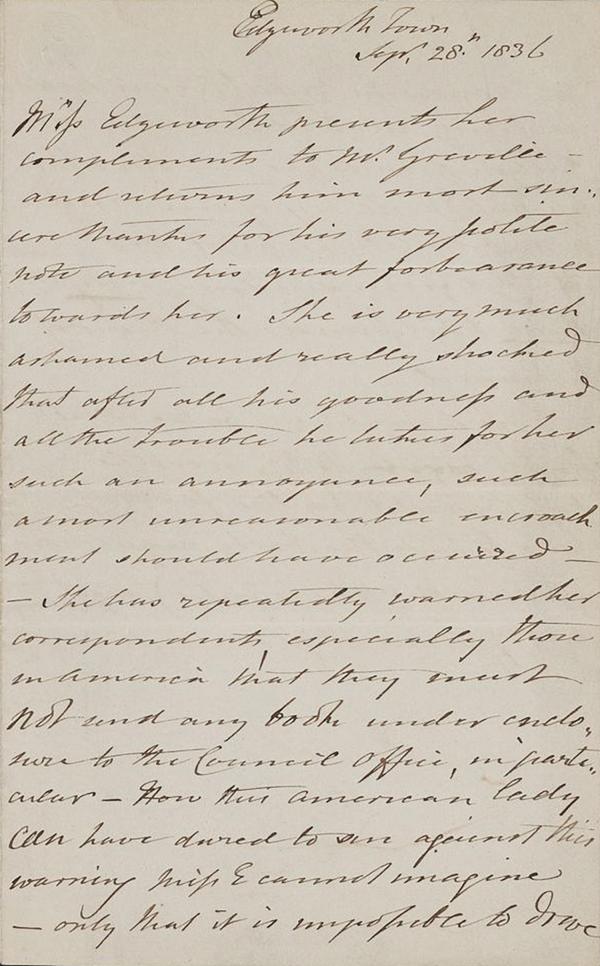 Edgeworth Town
Sept. 28th. 1836
Miss Edgeworth presents her
compliments to Mr. Greville –
and returns him most sin-
cere thanks for his very polite
note and his great forbearance
towards her. She is very much
ashamed and really shocked
that after all his goodness and
all the trouble he takes for her
such an annoyance, such
a most unreasonable encroach
ment should have occurred –
– She has repeatedly warned her
correspondents, especially those
in America that they must
not send any book under enclo-
sure to the Council Office, in parti-
cular – How this American lady
can have dared to sin against this
warning Miss E cannot imagine
– only that it is impossible to drive